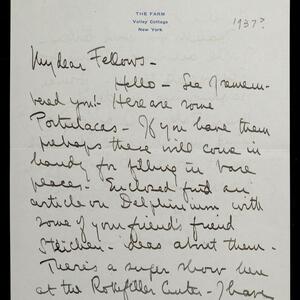 THE FARM
Valley Cottage
New York
1937?
My dear Fellows -
Hello - See I remem-
bered you! - Here are some
Portulacas - If you have them
perhaps these will come in
handy for filling in bare
places - Enclosed find an
article on Delphinium with
some of your friend's friend
Steichen - ideas about them -
There's a super show here
at the Rockefeller Center - I have